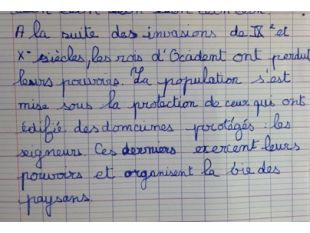 A la suite des invasions de IXe et
Xe siècles, les rois d'Occident ont perdut
leurs pouvoirs. La population s'est
mise sous la protection de ceux qui ont
édifié des domaines protégés : les
seigneurs. Ces derniers exercent leurs
pouvoirs et organisent la vie des
paysans.